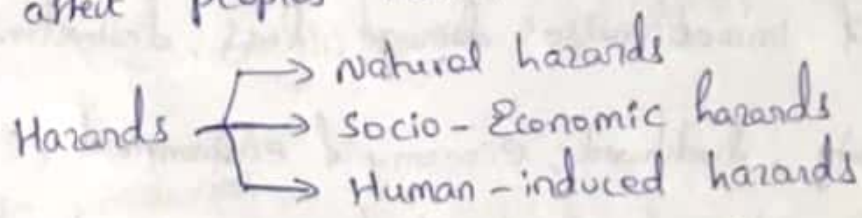 affect peoples
Natural hazards
Hazards Socio-Economic hazards
Human-induced hazards